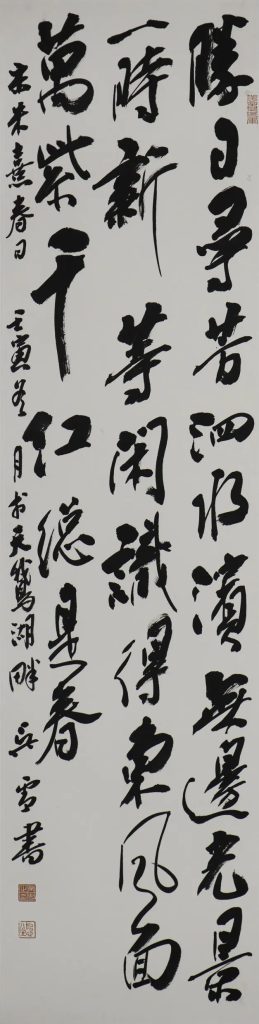 勝日尋芳泗水濱無邊光景
一時新等閑識得東風面
萬紫千紅總是春
宋朱熹春日
壬寅冬月於天鵝湖畔吳雪書